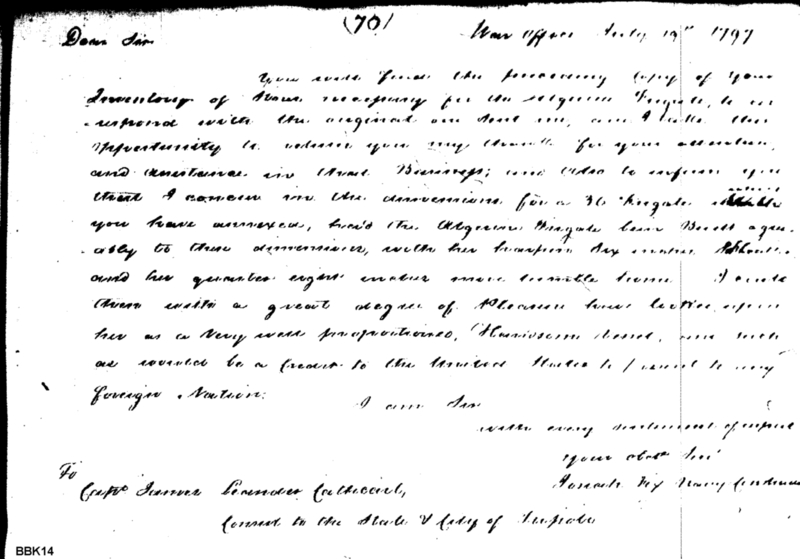 (70)
Dear Sir War Office July 19th 1797
You will find the preceding Copy of your
Inventory of Stores necessary for the Algerine Frigate, to cor
respond with the original one sent me, and I take this
opportunity to return you my thanks for your attention,
and assistance in that Business; and also to inform you
that I concur in the dimensions for a 36 Frigate which
you have annexed, had the Algerine Frigate been Built agre-
ably to these dimensions, with her six inches
and her quarter eight inches more tumble home I could
then with a great degree of Pleasure have looked upon
her as a Very well proportioned, Handsome Vessel, and such
as would be a Credit to the United States to present to any
foreign Nation.
I am Sir
with every sentiment of respect
your obdt Ser
To Josiah Fox Navy
Captn James Leander Cathcart,
Consul to the State & City of Tripoli
BBK14